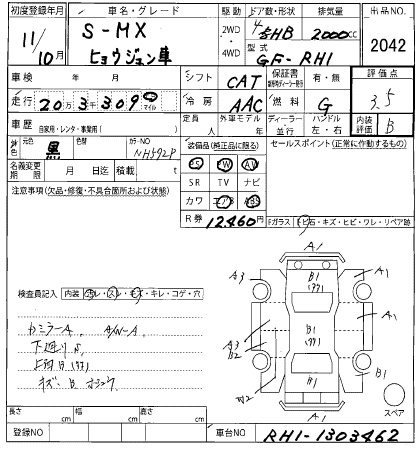 初度登録年月 車名・グレード 駆動 ドア数・形状 排気量 出品NO
11/10月 S-MX 2WD・4WD 5HB 2000cc 2042
ヒョウジュン車 型式 GF-RH1
車検 年 月 シフト CAT 保証書 有・無 評価点
走行 20万3千309 マイル 冷房 AAC 燃料 G 3.5
車歴 自家用・レンタ・事業用( ) 定員 人 外車モデル 年 ディーラー・並行 ハンドル 左・右 内装評価 B
外色 元色 黒 色替 カラーNO NH592P 装備品(純正品に限る) セールスポイント(正常に作動するもの)
PS PW AW
名義変更期限 月 日迄 積載 t SR TV ナビ
注意事項(欠品・修復・不具合箇所および状態) カワ エアB ABS
R券 12,460円 Fガラス トビ石・キズ・ヒビ・ワレ・リペア跡
A1
A3 B1 A1
検査員記入 内装 汚レ・スレ・キズ・キレ・コゲ・穴
カミラーA A/W-A
A3 B2 B1 A1
下廻りS
B1 B1
W2 A1
スペア
長さ cm 幅 cm 高さ cm
登録NO 車台NO RH1-1303462